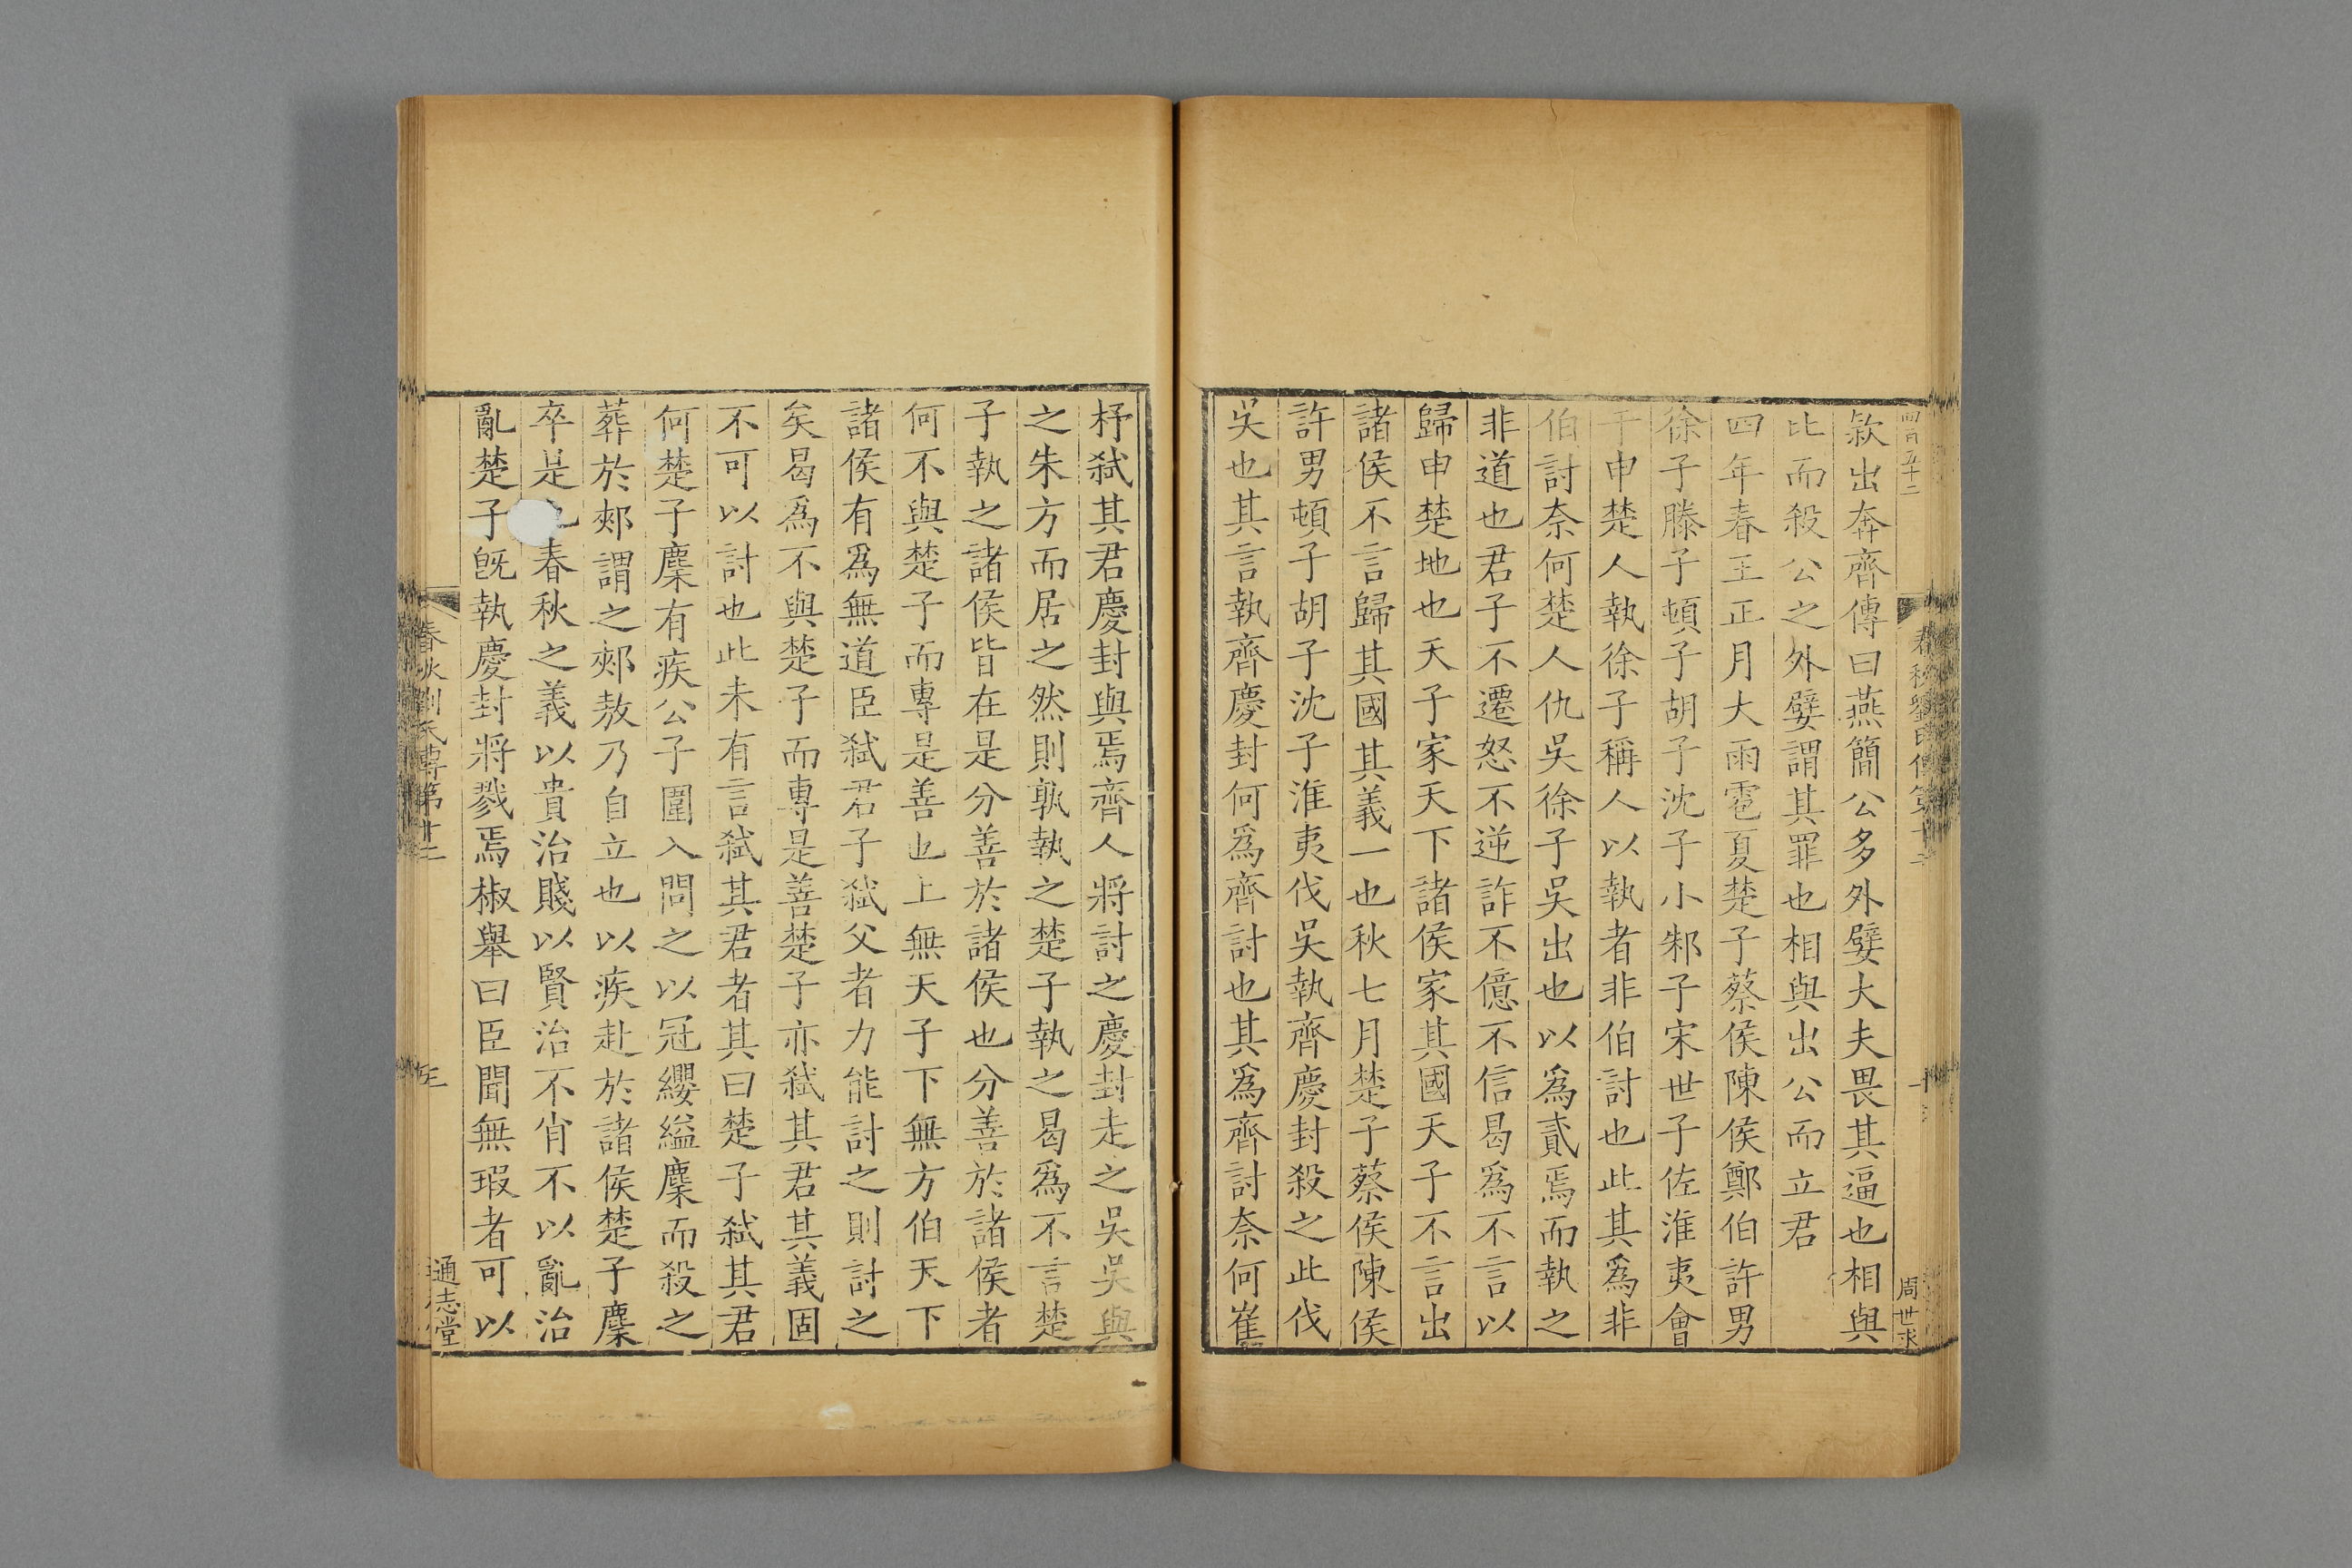 四百五十二
周世求
款出奔齊傳曰燕簡公多外嬖大夫畏其逼也相與
比而殺公之外嬖謂其罪也相與出公而立君
四年春王正月大雨雹夏楚子蔡侯陳侯鄭伯許男
徐子滕子頓子胡子沈子小邾子宋世子佐淮夷會
于申楚人執徐子稱人以執者非伯討也此其爲非
伯討奈何楚人仇吳徐子吳出也以爲貳焉而執之
非道也君子不遷怒不逆詐不億不信曷爲不言以
歸申楚地也天子家天下諸侯家其國天子不言出
諸侯不言歸其國其義一也秋七月楚子蔡侯陳侯
許男頓子胡子沈子淮夷伐吳執齊慶封殺之此伐
吳也其言執齊慶封何爲齊討也其爲齊討奈何崔
杼弑其君慶封與焉齊人將討之慶封走之吳吳與
之朱方而居之然則孰執之楚子執之曷爲不言楚
子執之諸侯皆在是分善於諸侯也分善於諸侯者
何不與楚子而專是善也上無天子下無方伯天下
諸侯有爲無道臣弑君子弑父者力能討之則討之
矣曷爲不與楚子而專是善楚子亦弑其君其義固
不可以討也此未有言弑其君者其曰楚子弑其君
何楚子麇有疾公子圍入問之以冠纓縊麇而殺之
葬於郟謂之郟敖乃自立也以疾赴於諸侯楚子麇
卒是也春秋之義以貴治賤以賢治不肖不以亂治
亂楚子旣執慶封將戮焉椒舉曰臣聞無瑕者可以
春秋劉氏傳第十二
通志堂